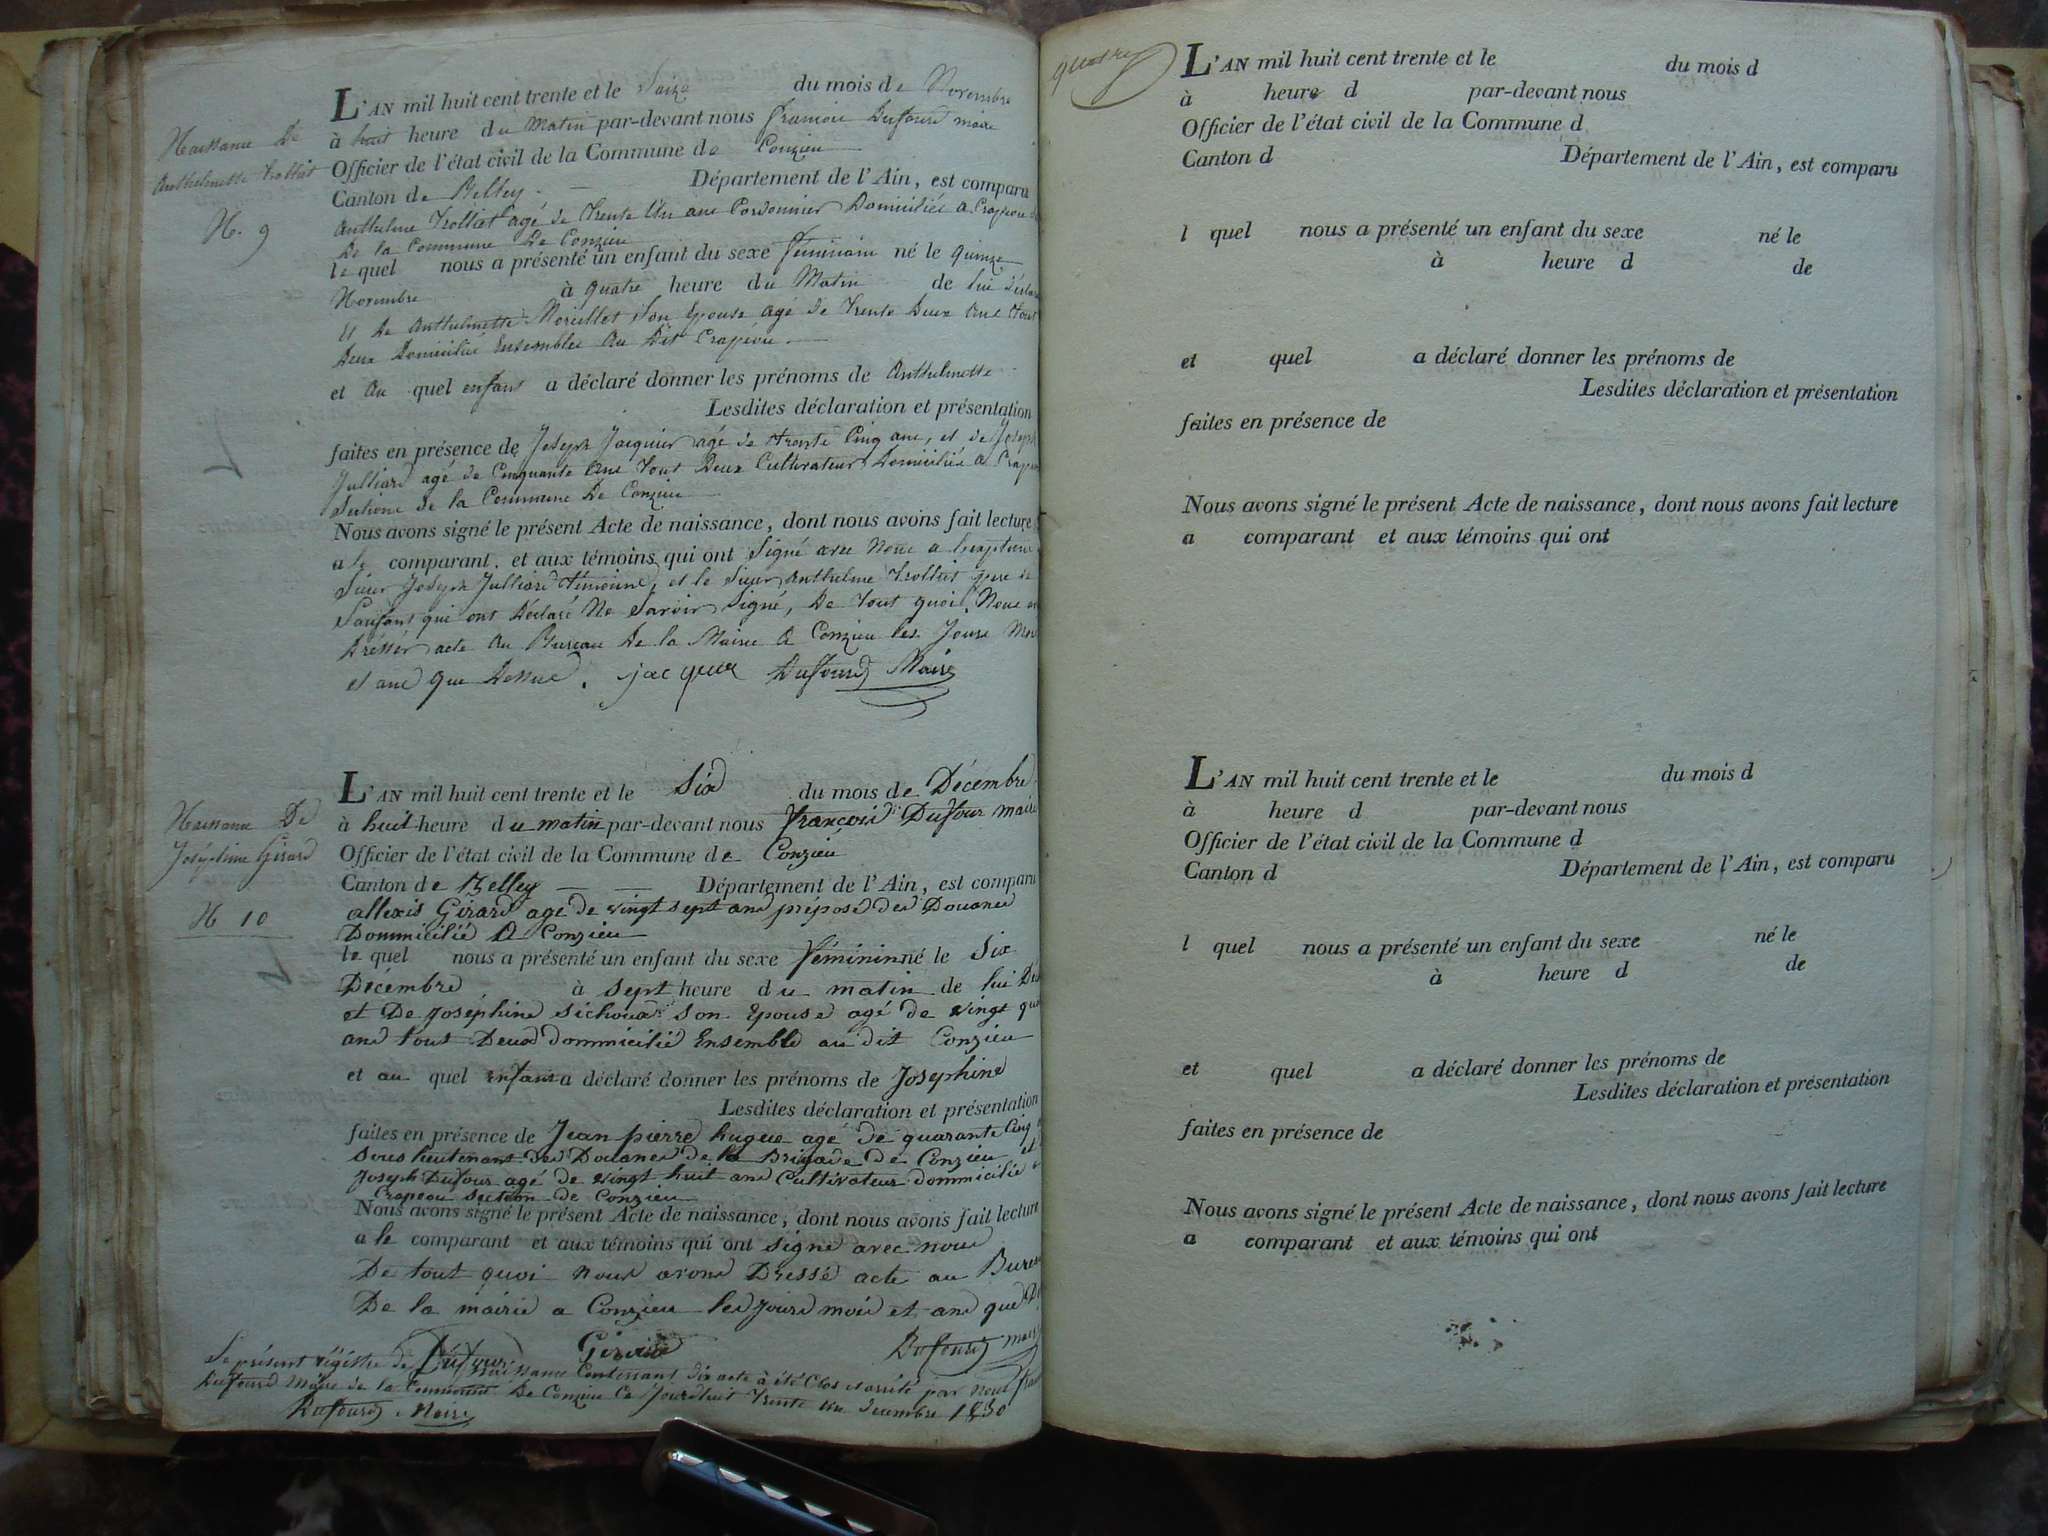 Naissance De
Anthelmette Trollict
N. 9
L'AN mil huit cent trente et le Saize du mois de Novembre
à huit heure du Matin par-devant nous françois Dufourd maire
Officier de l'état civil de la Commune de Conzieu
Canton de Belley. — Département de l'Ain, est comparu
Anthelme Trolliet agé de trente Un ans Cordonnier Domiciliés a Crapeou
De la Commune De Conzieu
le quel nous a présenté un enfant du sexe féminin né le quinze
Novembre à quatre heure du Matin de lui
Et De Anthelmette Son Epouse agé de Trente Deux ans tout
Deux Domicilié Ensembles au Dit Crapéou.
et au quel enfant a déclaré donner les prénoms de Anthelmette
Lesdites déclaration et présentation
faites en présence de Joseph Jacquier agé de trente Cinq ans, et de Joseph
Julliard agé de Cinquante ans tout Deux Cultivateur Domiciliés a
Sections de la Commune De Conzieu
Nous avons signé le présent Acte de naissance, dont nous avons fait lecture
a le comparant. et aux témoins qui ont Signé avec Nous a
Sieur Joseph Julliard témoins, et le Sieur Anthelme Trolliet pere de
L'anfant qui ont Déclaré Ne Savoir Signé, De tout quoi Nous
Dresser acte au Bureau De la Mairie a Conzieu les Jours
et ans que Dessus. jacquier Dufourd Maire
Naissance De
Joséphine Girard
N 10
L'AN mil huit cent trente et le Six du mois de Décembre
à huit heure du matin par-devant nous françois Dufour maire
Officier de l'état civil de la Commune de Conzieu
Canton de Belley — — Département de l'Ain, est comparu
allexis Girard agé de vingt sept ans préposé des Douanes
Dommicilié A Conzieu
le quel nous a présenté un enfant du sexe féminin né le Six
Décembre à sept heure du matin de lui
et De Joséphine Sichouar son Epouse agé de vingt
ans tout Deux dommicilié Ensemble au dit Conzieu
et au quel enfant a déclaré donner les prénoms de Josephine
Lesdites déclaration et présentation
faites en présence de Jean pierre hugue agé de quarante Cinq
sous lieutenant des Douanes de la Brigade de Conzieu et
Joseph Dufour agé de vingt huit ans Cultivateur dommicilié
Crapeou section de Conzieu
Nous avons signé le présent Acte de naissance, dont nous avons fait lecture
a le comparant et aux témoins qui ont signé avec nous
De tout quoi nous avons Dressé acte au
De la mairie a Conzieu les jours mois et ans que
Dufour Girard Dufourd
Le présent régistre de naissance Contenant dix acte à été Clos et arrêté par nous
Dufourd Maire de la Commune De Conzieu Ce Jourdhui Trente un decembre 1830
Dufourd Maire
quatre
L'AN mil huit cent trente et le du mois d
à heure d par-devant nous
Officier de l'état civil de la Commune d
Canton d Département de l'Ain, est comparu
l quel nous a présenté un enfant du sexe né le
à heure d de
et quel a déclaré donner les prénoms de
Lesdites déclaration et présentation
faites en présence de
Nous avons signé le présent Acte de naissance, dont nous avons fait lecture
a comparant et aux témoins qui ont
L'AN mil huit cent trente et le du mois d
à heure d par-devant nous
Officier de l'état civil de la Commune d
Canton d Département de l'Ain, est comparu
l quel nous a présenté un enfant du sexe né le
à heure d de
et quel a déclaré donner les prénoms de
Lesdites déclaration et présentation
faites en présence de
Nous avons signé le présent Acte de naissance, dont nous avons fait lecture
a comparant et aux témoins qui ont